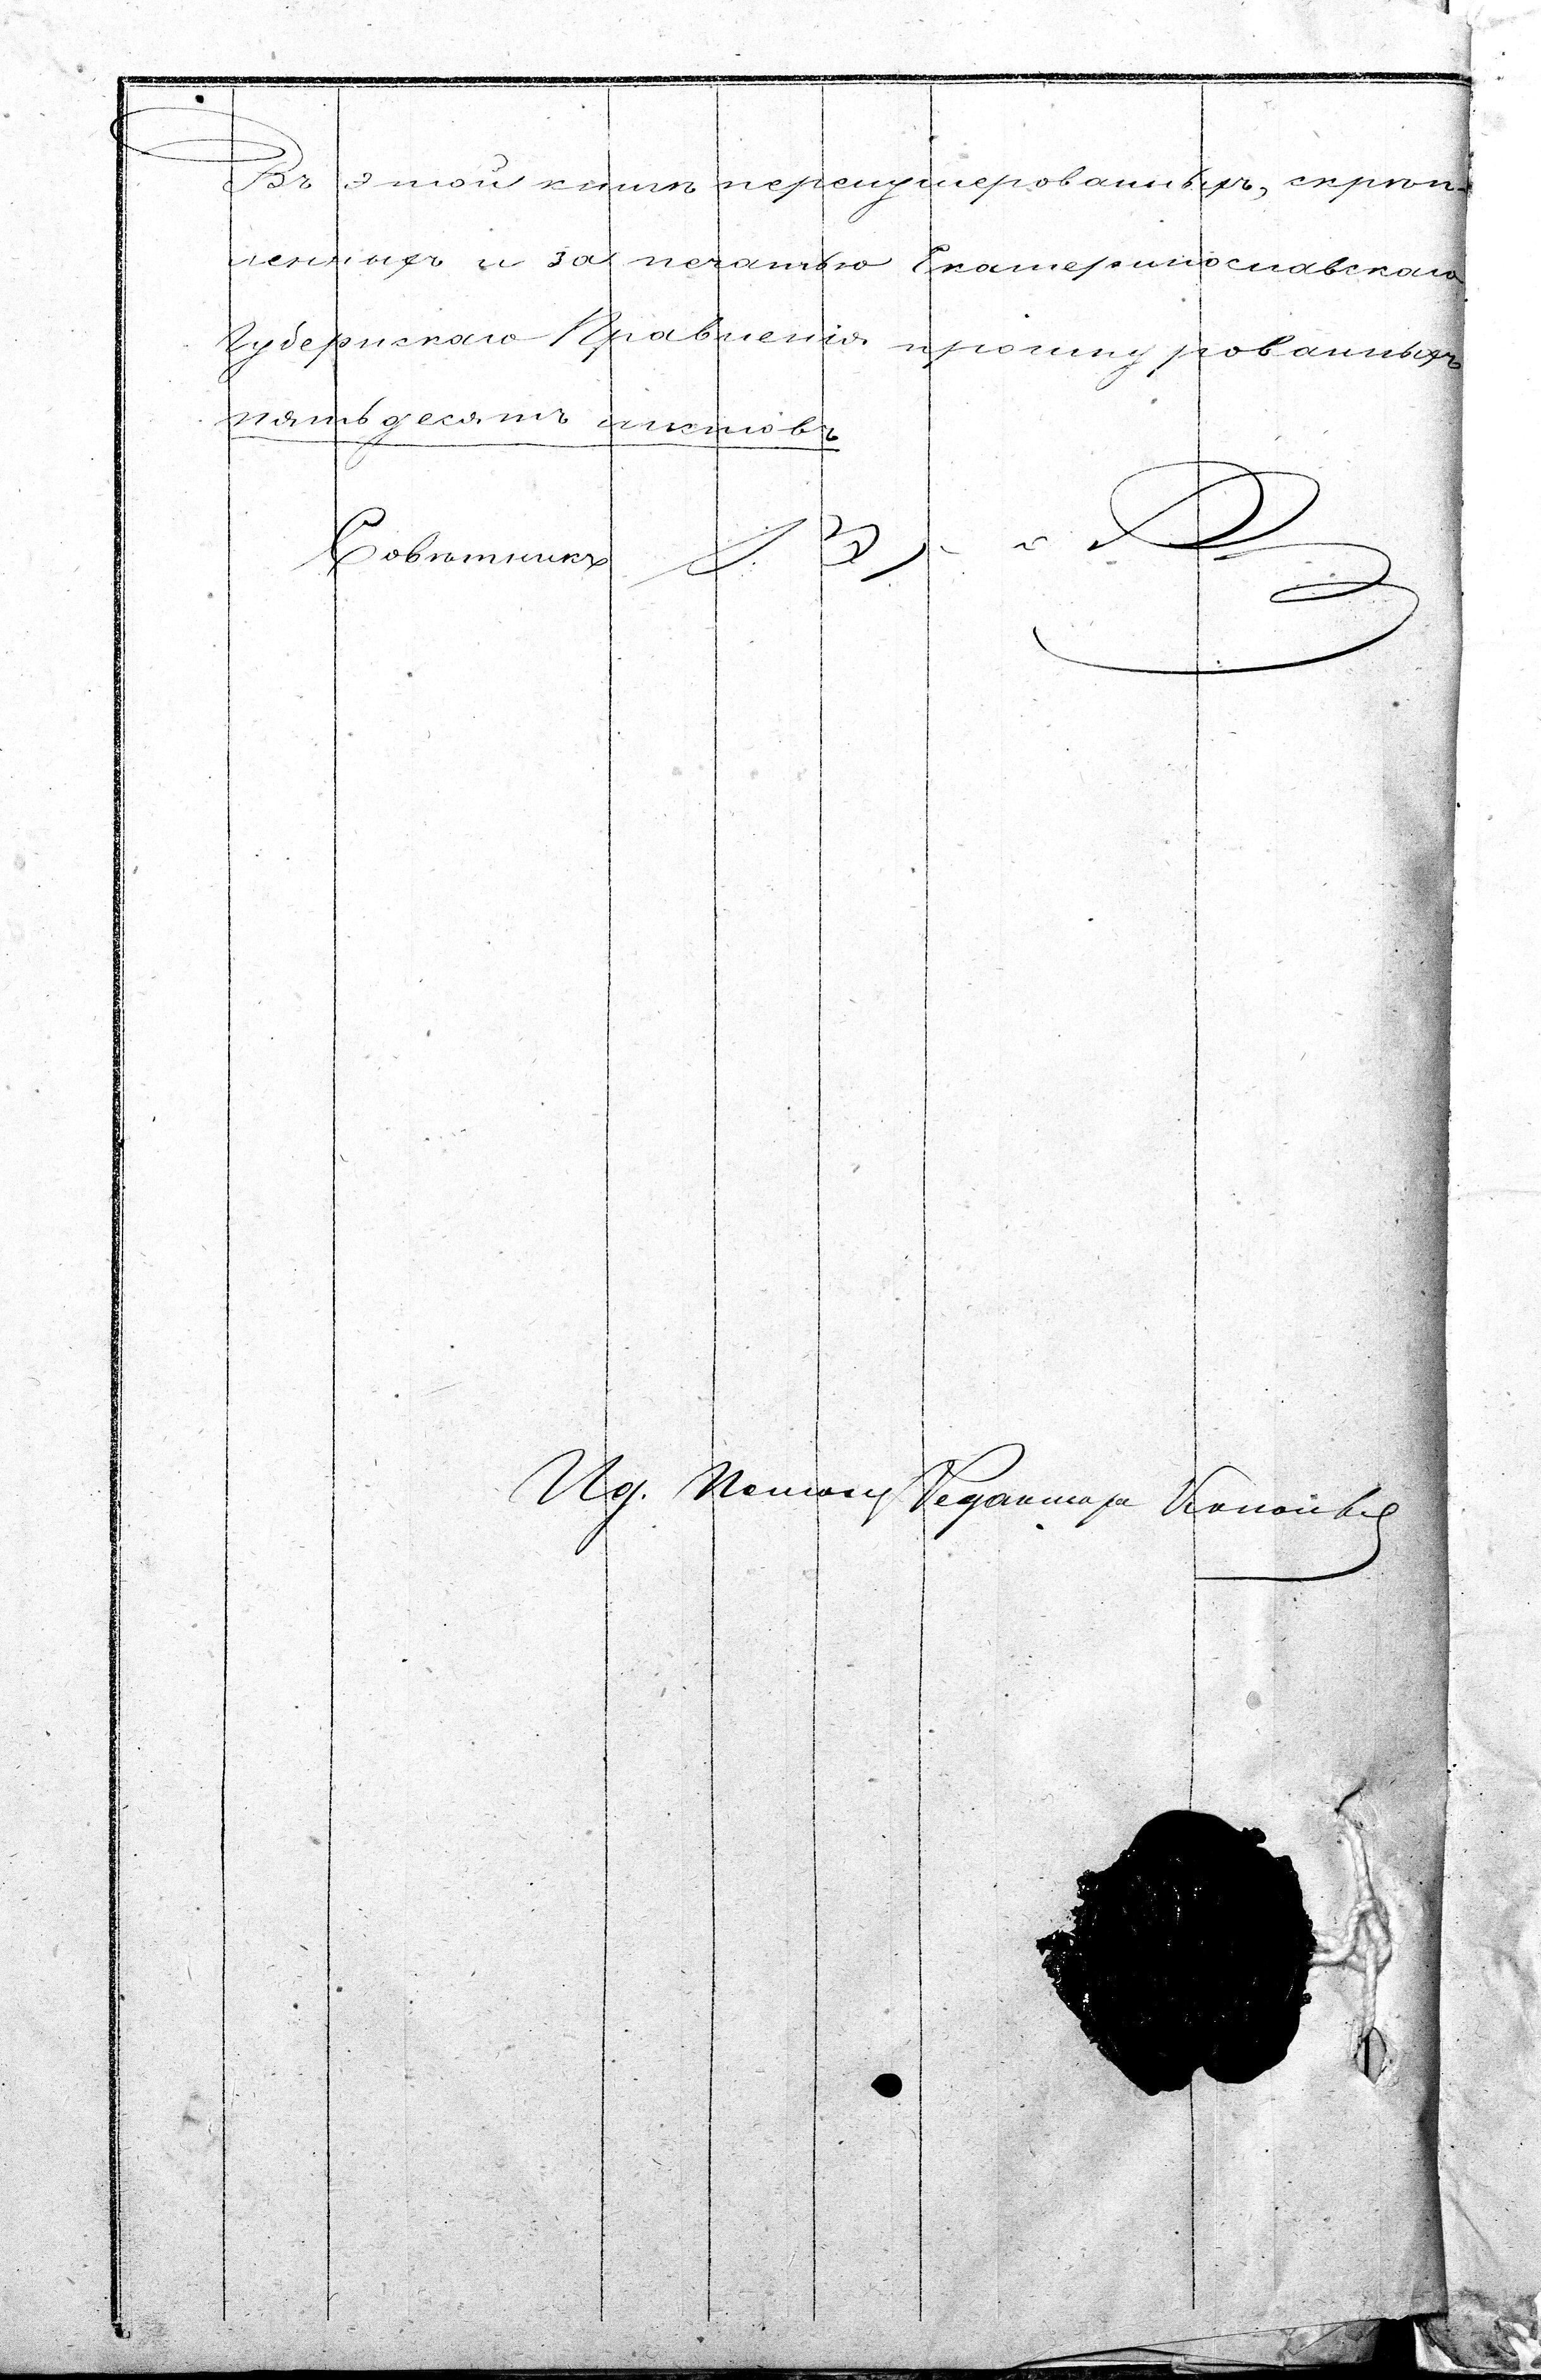 Въ этой книгѣ перенумерованныхъ, скрѣп-
ленныхъ и за печатью Екатеринославскаго
Губернскаго Правленія прошнурованныхъ
пятьдесятъ листовъ
Совѣтникъ
И.д. Помощ Редактора